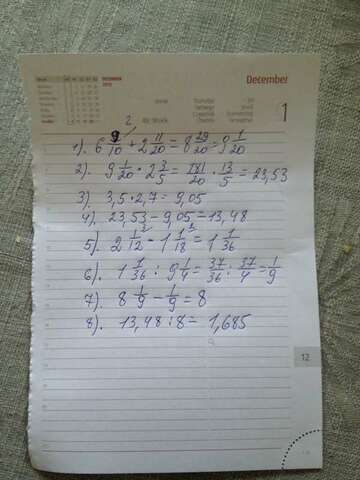 DECEMBER
December
1
2
1). 6 9/10 + 2 11/20 = 8 29/20 = 9 1/20
2). 9 1/20 · 2 3/5 = 181/20 · 13/5 = 23,53
3) 3,5 · 2,7 = 9,05
4). 23,53 - 9,05 = 13,48
5). 2 1/12 - 1 1/18 = 1 1/36
6). 1 1/36 : 9 1/4 = 37/36 : 37/4 = 1/9
7) 8 1/9 - 1/9 = 8
8). 13,48 : 8 = 1,685
12